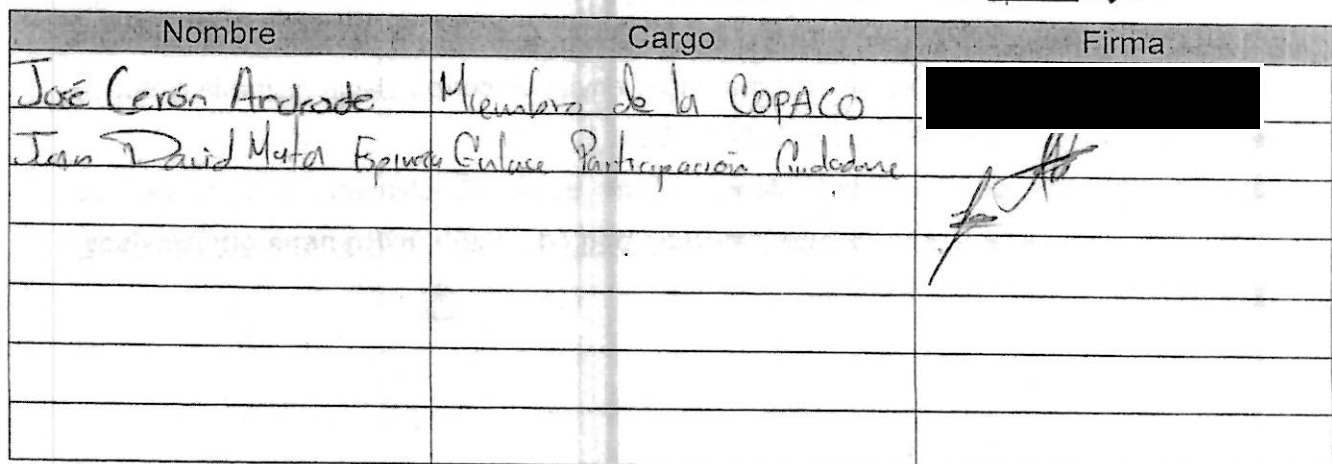 Nombre Cargo Firma
José Cerón Andrade Miembro de la COPACO
Juan David Mata Espinoza Enlace Participación Ciudadana